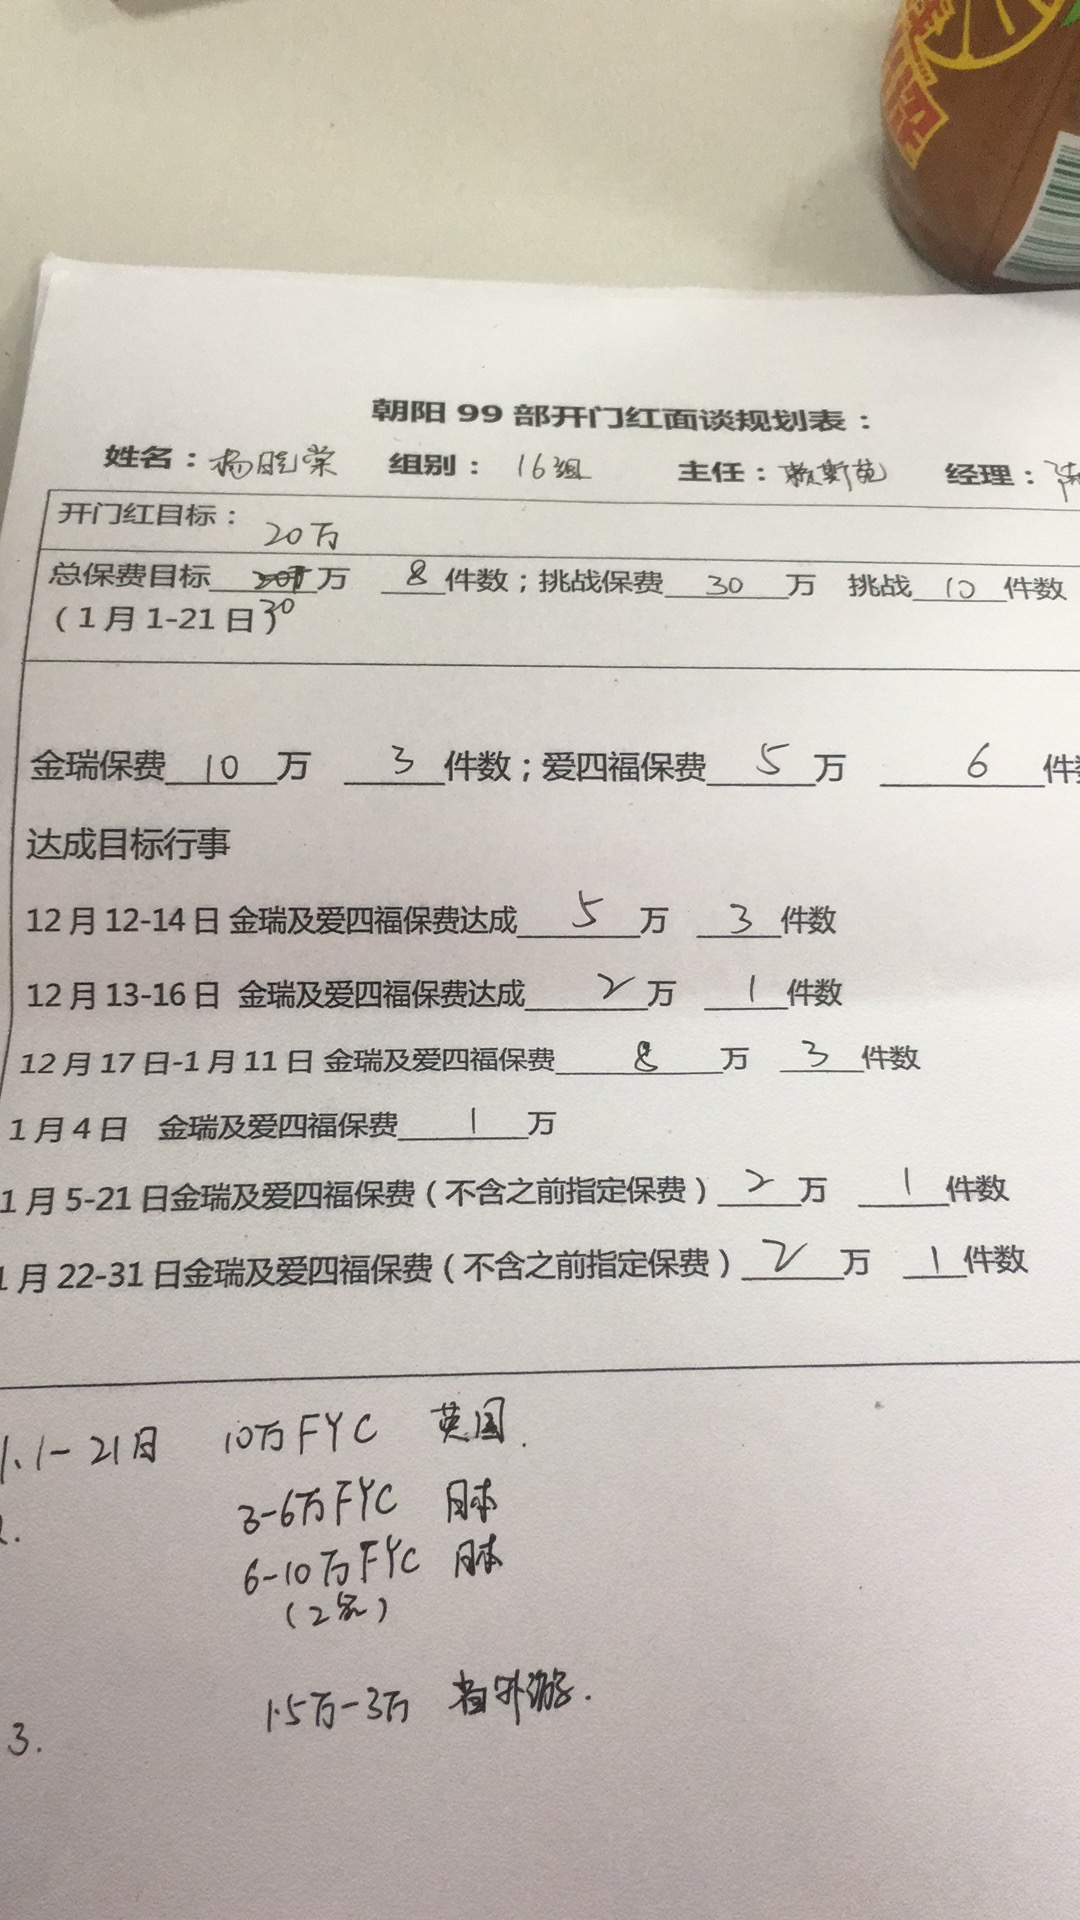 朝阳 99 部开门红面谈规划表：
姓名：杨晓荣 组别：16组 主任：赖斯苑 经理：
开门红目标：20万
总保费目标 万 8 件数；挑战保费 30 万 挑战 10 件数
（1月1-21日） 30
金瑞保费 10 万 3 件数；爱四福保费 5 万 6 件数
达成目标行事
12月12-14日 金瑞及爱四福保费达成 5 万 3 件数
12月13-16日 金瑞及爱四福保费达成 2 万 1 件数
12月17日-1月11日 金瑞及爱四福保费 8 万 3 件数
1月4日 金瑞及爱四福保费 1 万
1月5-21日金瑞及爱四福保费（不含之前指定保费）2 万 1 件数
1月22-31日金瑞及爱四福保费（不含之前指定保费）2 万 1 件数
1.1-21日 10万FYC 英国.
2. 3-6万FYC 日本
6-10万FYC 日本
（2名）
1.5万-3万 省外游.
3.